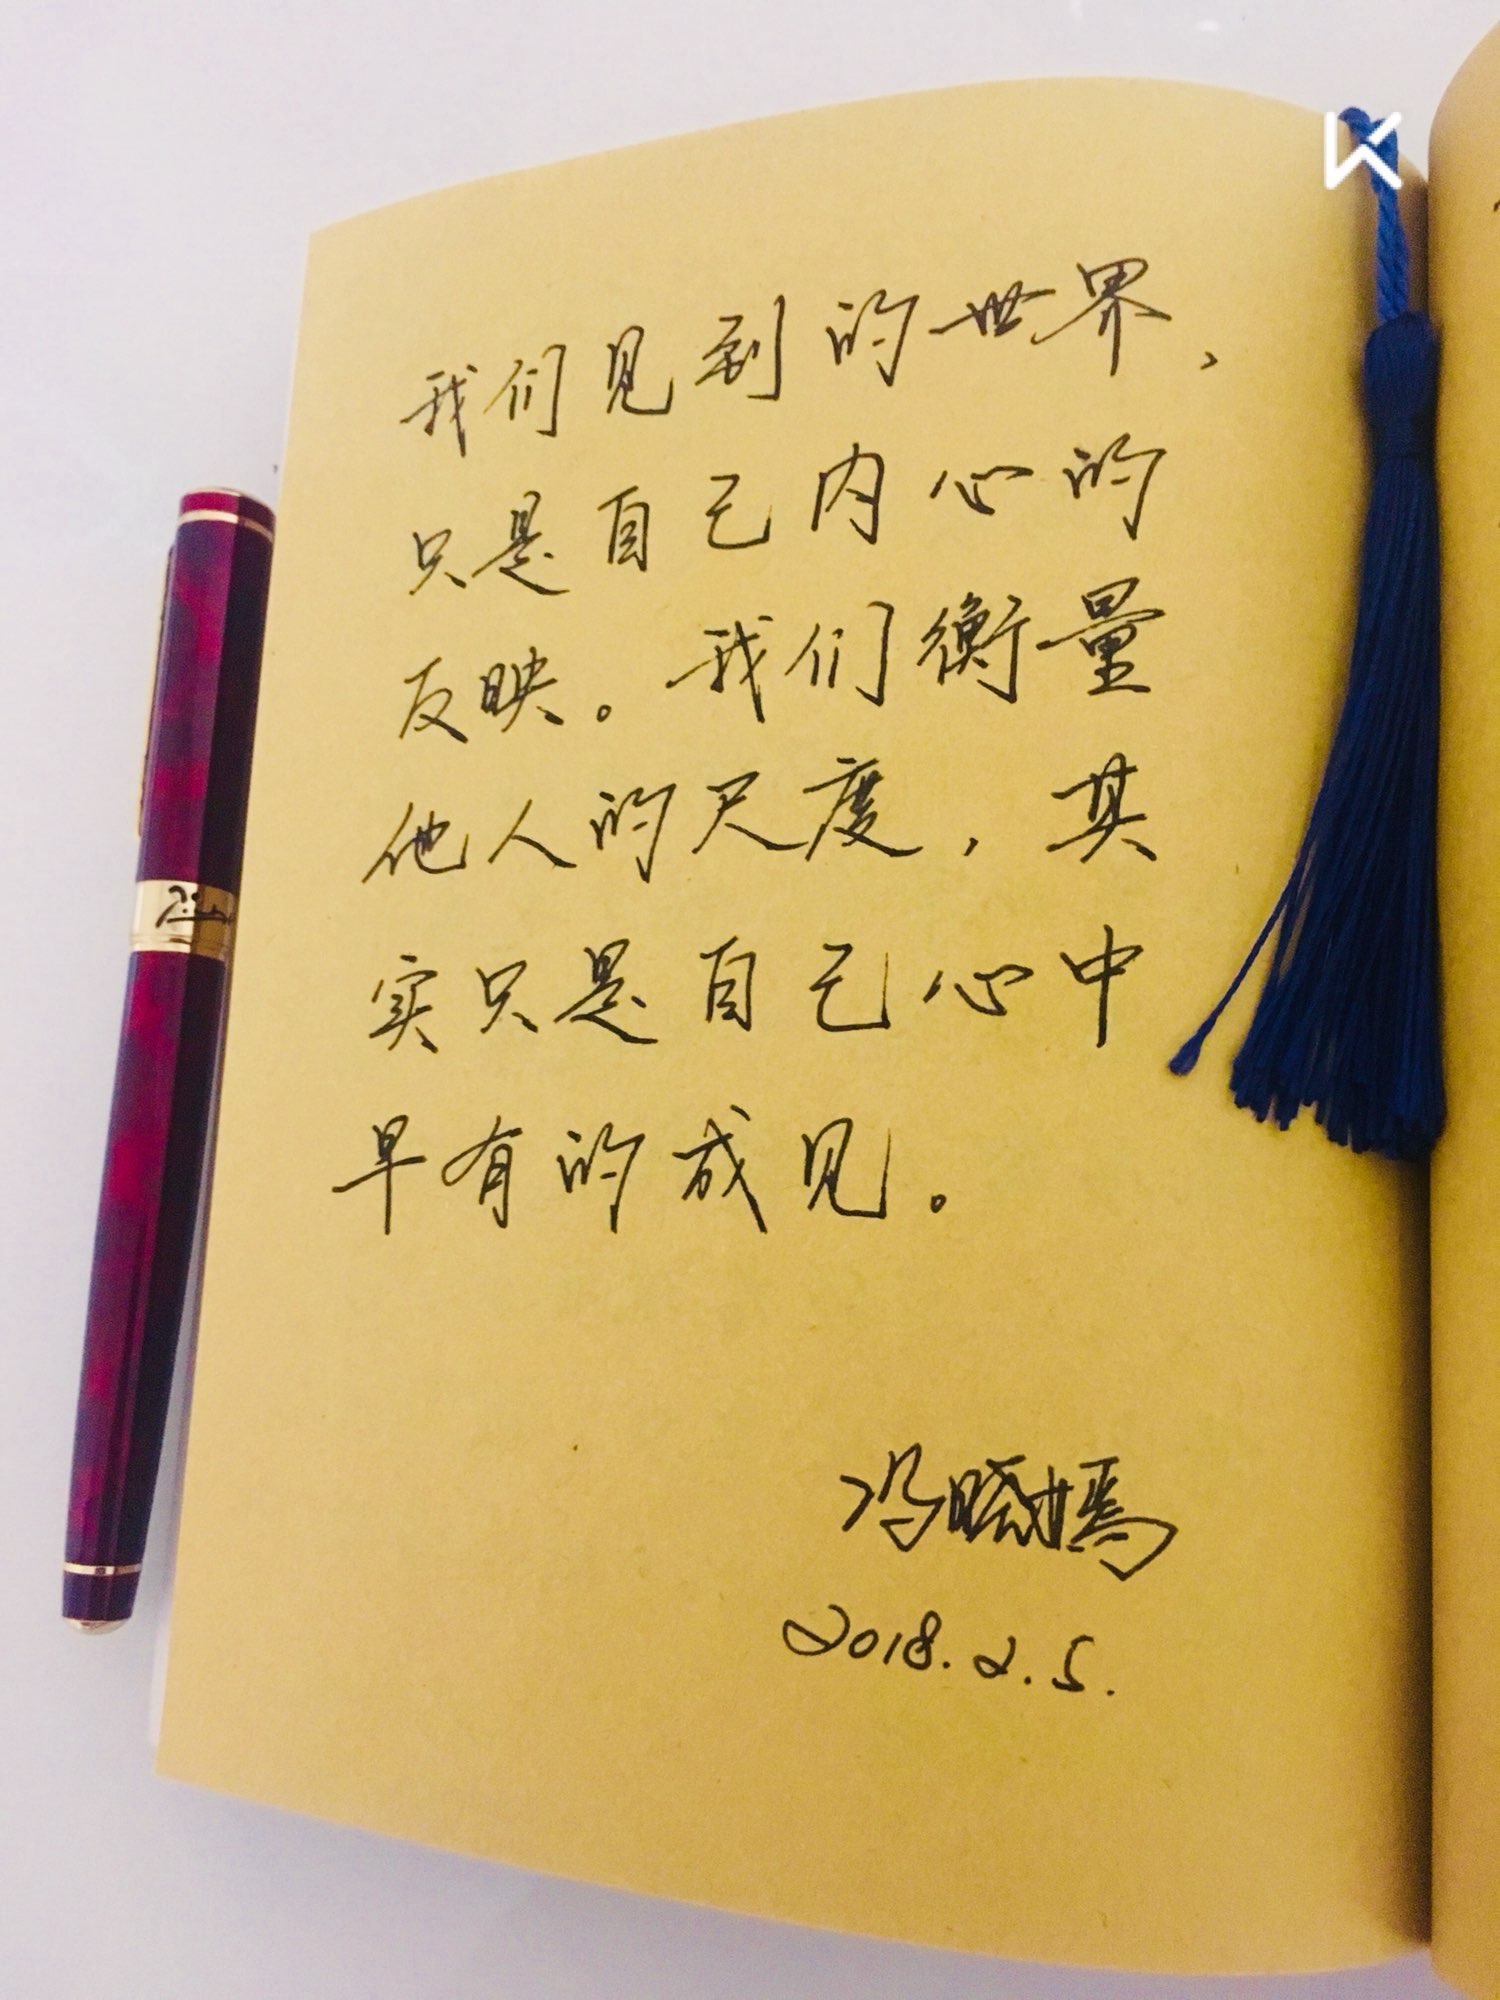 我们见到的世界，
只是自己内心的
反映。我们衡量
他人的尺度，其
实只是自己心中
早有的成见。
冯晓嫣
2018.2.5.